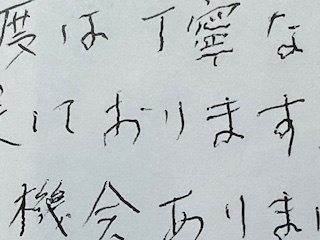 度は丁寧な
ております
機会ありま